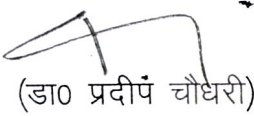 (डा0 प्रदीपं चौधरी)